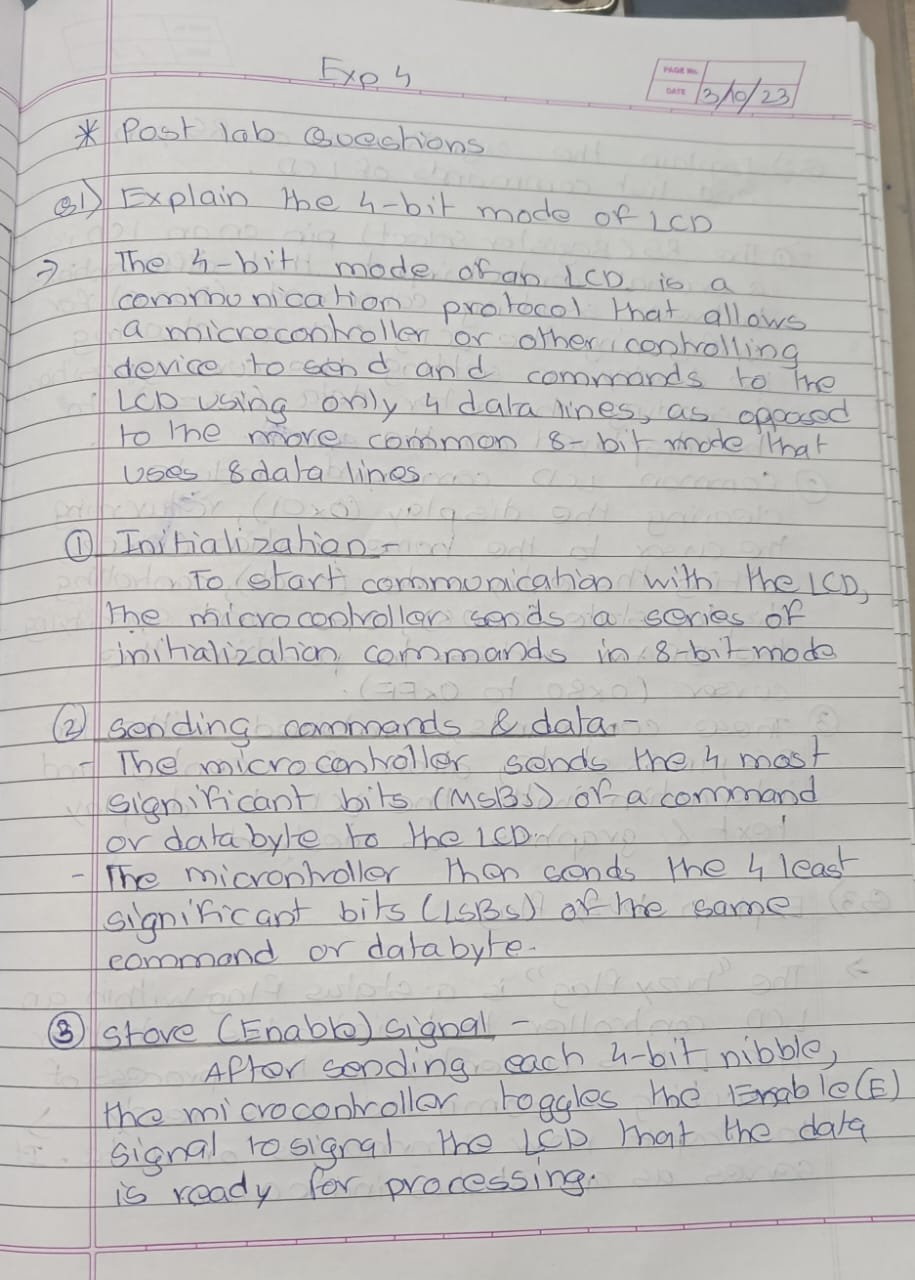 Exp 4
PAGE No.
DATE 3/10/23
* Post lab Questions
Q1) Explain the 4-bit mode of LCD
→ The 4-bit mode of an LCD is a
communication protocol that allows
a microcontroller or other controlling
device to send and commands to the
LCD using only 4 data lines, as opposed
to the more common 8-bit mode that
uses 8 data lines.
① Initialization -
To start communication with the LCD,
the microcontroller sends a series of
initialization commands in 8-bit mode
② Sending commands & data -
- The microcontroller sends the 4 most
significant bits (MSBs) of a command
or data byte to the LCD.
- The microntroller then sends the 4 least
significant bits (LSBs) of the same
command or data byte.
③ Stove (Enable) signal -
After sending each 4-bit nibble,
the microcontroller toggles the Enable (E)
signal to signal the LCD that the data
is ready for processing.